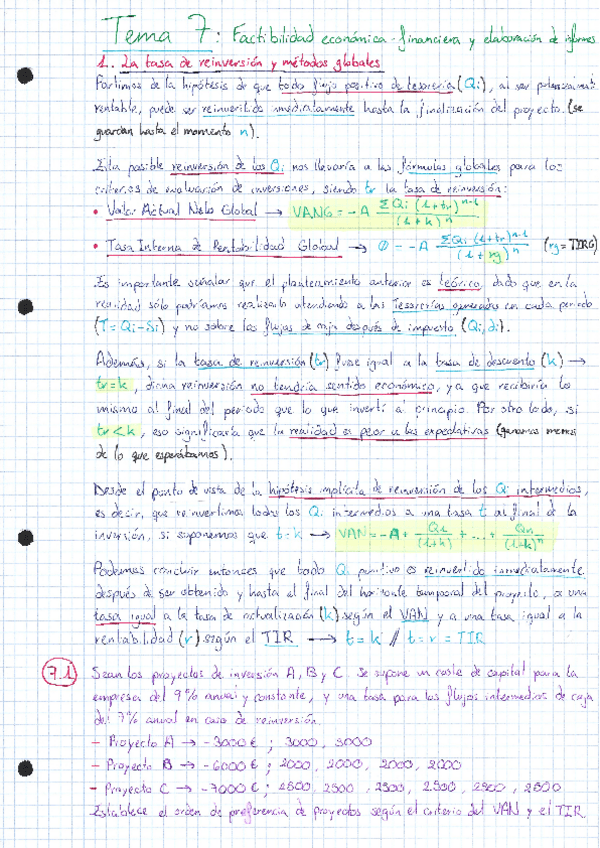 Tema 7: Factibilidad económica-financiera y elaboración de informes
1. La tasa de reinversión y métodos globales
Partimos de la hipótesis de que todo flujo positivo de tesorería (Qi), al ser potencialmente
rentable, puede ser reinvertido inmediatamente hasta la finalización del proyecto (se
guardan hasta el momento n).
Esta posible reinversión de los Qi nos llevaría a las fórmulas globales para los
criterios de evaluación de inversiones, siendo tr la tasa de reinversión:
• Valor Actual Neto Global → VANG = -A ΣQi (1+tr)^n-i / (1+k)^n
• Tasa Interna de Rentabilidad Global → 0 = -A ΣQi (1+tr)^n-i / (1+rg)^n (rg = TIRG)
Es importante señalar que el planteamiento anterior es teórico, dado que en la
realidad sólo podríamos realizarlo atendiendo a las Tesorerías generadas en cada periodo
(T = Qi - Si) y no sobre los flujos de caja después de impuesto (Qi, di).
Además, si la tasa de reinversión (tr) fuese igual a la tasa de descuento (k) →
tr = k, dicha reinversión no tendría sentido económico, ya que recibiría lo
mismo al final del periodo que lo que invertí al principio. Por otro lado, si
tr < k, eso significaría que la realidad es peor a las expectativas (ganamos menos
de lo que esperábamos).
Desde el punto de vista de la hipótesis implícita de reinversión de los Qi intermedios,
es decir, que reinvertimos todos los Qi intermedios a una tasa t al final de la
inversión, si suponemos que t = k → VAN = -A + Q1 / (1+k) + ... + Qn / (1+k)^n
Podemos concluir entonces que todo Qi positivo es reinvertido inmediatamente
después de ser obtenido y hasta el final del horizonte temporal del proyecto, a una
tasa igual a la tasa de actualización (k) según el VAN y a una tasa igual a la
rentabilidad (r) según el TIR → t = k // t = r = TIR
7.1 Sean los proyectos de inversión A, B y C. Se supone un coste de capital para la
empresa del 9% anual y constante, y una tasa para los flujos intermedios de caja
del 7% anual en caso de reinversión.
- Proyecto A → -3000€ ; 3000, 3000
- Proyecto B → -6000€ ; 2000, 2000, 2000, 2000
- Proyecto C → -7000€ ; 2500, 2500, 2500, 2500, 2500, 2500
Establece el orden de preferencia de proyectos según el criterio del VAN y el TIR.